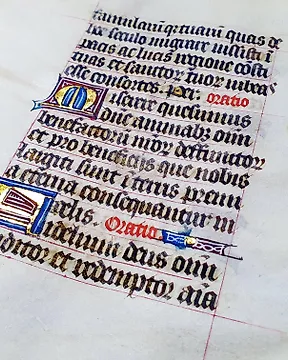 famulam qͥ tuam quas de
hoc seculo migrare iussisti
pacis ac lucis regione cōsti
tuas et sanctoꝝ tuoꝝ iubeas
esse consortes. Per. Oratio
Miserere quesumus
dn̄e animabꝫ om̄
benefactoꝝ nr̄oꝝ defunctoꝝ
et pro beneficijs que nobis
largiti sunt i terris premi
a eterna consequantur in
celis. Oratio
Fidelium deus om̄
ditor et redemptor aīa